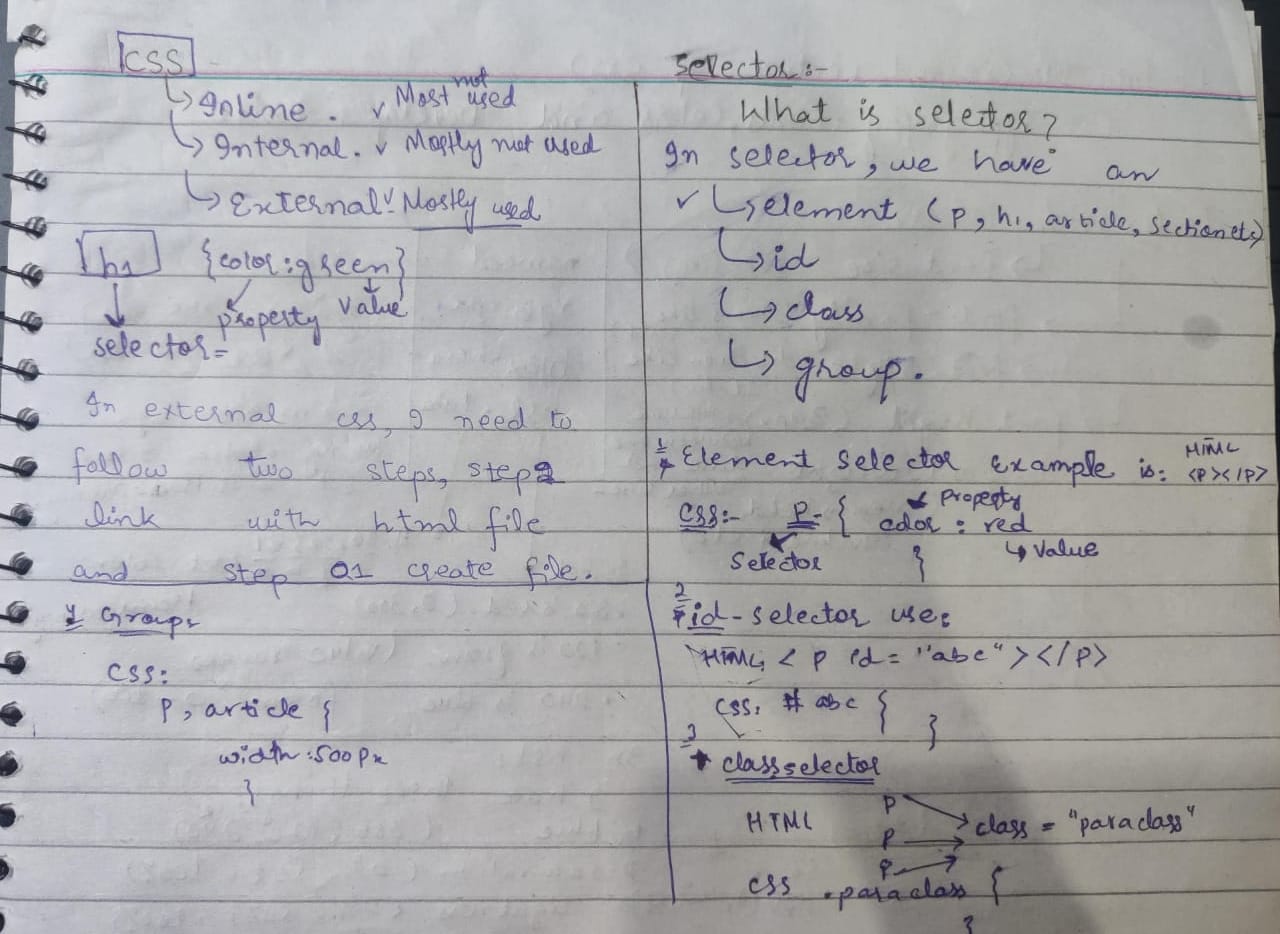 CSS
Inline. Most not used
Internal. Mostly not used
External: Mostly used
h1 {color:green}
property value
selector=
In external css, I need to
follow two steps, step 2
link with html file
and step 01 create file.
Groups
CSS:
P, article {
width:500px
}
Selector:-
What is selector?
In selector, we have an
element (p, h1, article, section etc)
id
class
group.
1 Element selector example is: HTML
<P></P>
Property
CSS:- P- { color: red
Selector } Value
2
id-selector use:
HTML, < p id = "abc"></P>
CSS: # abc {
}
3
class selector
P
HTML P class = "paraclass"
P
CSS .paraclass {
}